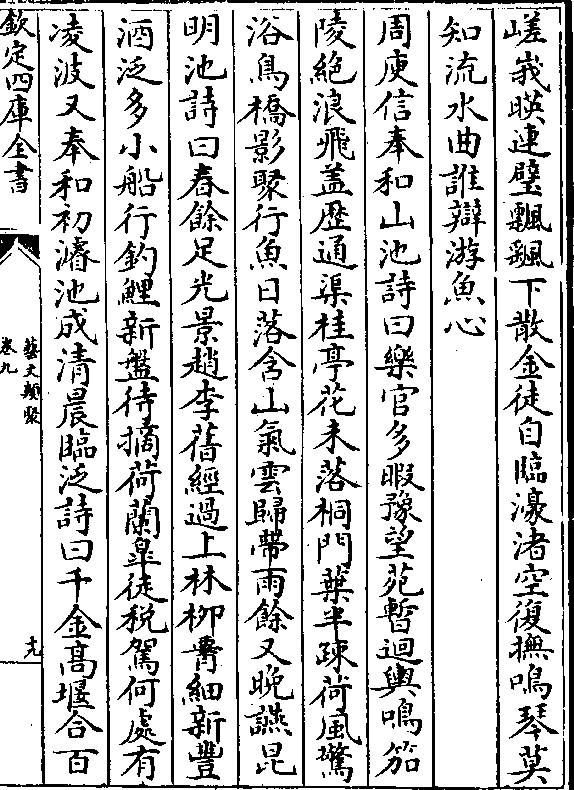 嵯峩暎連璧飄颻下散金徒自臨濠渚空復撫鳴琴莫
知流水曲誰辯游魚心
周庾信奉和山池詩曰樂官多暇豫望苑暫迴輿鳴笳
陵絶浪飛盖歴通渠桂亭花未落桐門葉半疎荷風驚
浴鳥橋影聚行魚日落含山氣雲歸帶雨餘又晚讌昆
明池詩曰春餘足光景趙李舊經過上林柳青細新豐
酒泛多小船行釣鯉新盤待摘荷蘭臯徒税駕何處有
凌波又奉和初濬池成清晨臨泛詩曰千金髙堰合百
欽定四庫全書
藝文類聚
卷九
十九